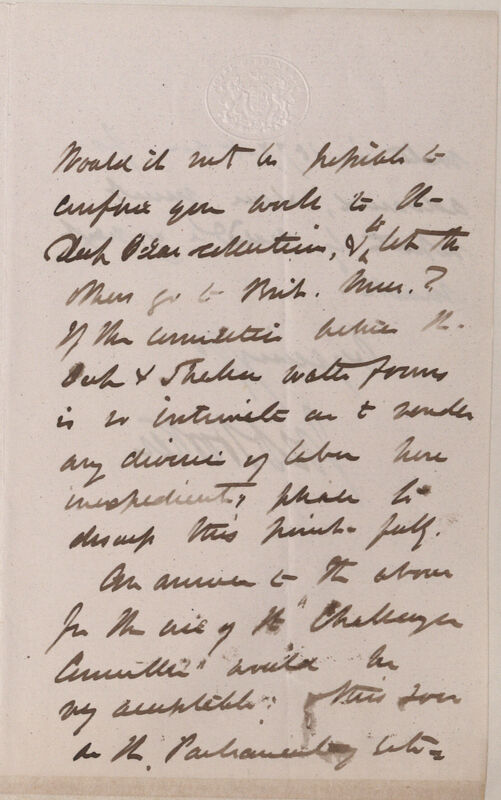 Would it not be possible to
confine your work to the
Deep Sea collection, & let the
others go to Brit. Mus.?
If the connection between the
Deep & Shallow water forms
is so intimate as to render
any division of labor here
inexpedient, please to
discuss this point fully.
An answer to the above
for the use of the "Challenger
Committee" would be
very acceptable: this soon
as the Parliamentary